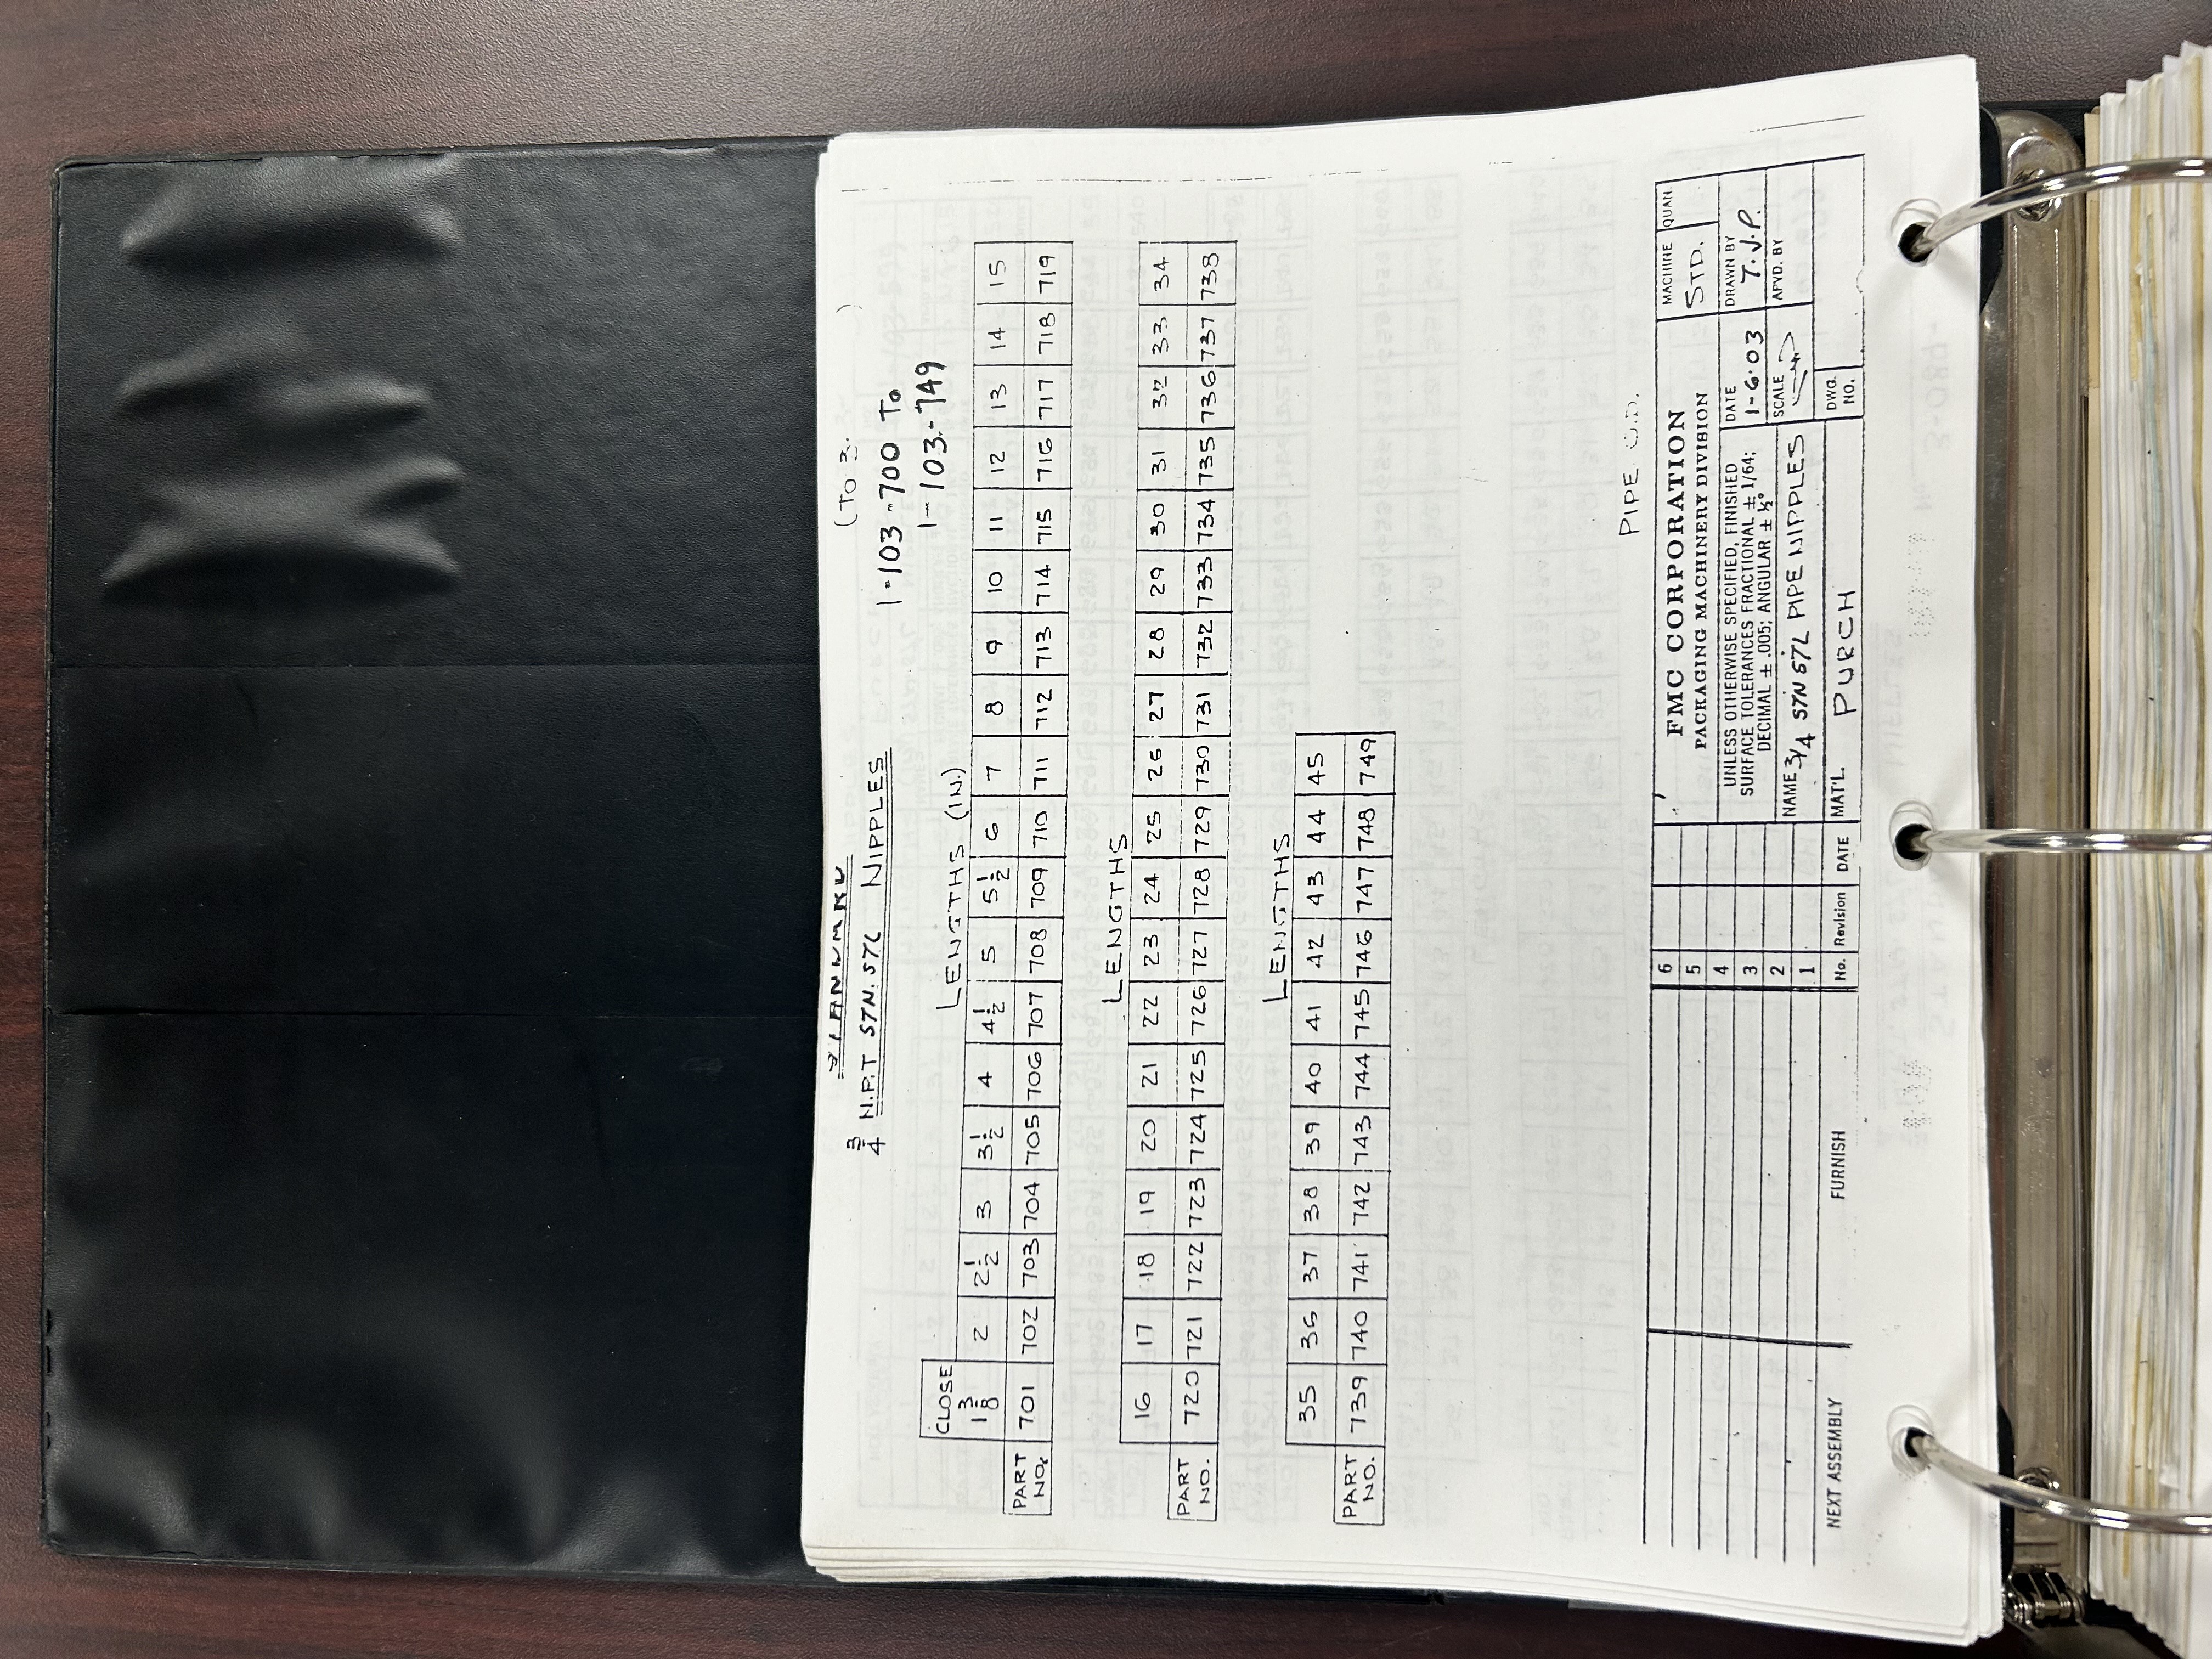 STANDARD
3/4 N.P.T STN. STL NIPPLES
(TO 3- )
1-103-700 To
1-103-749
LENGTHS (IN.)
CLOSE 1 3/8 2 2 1/2 3 3 1/2 4 4 1/2 5 5 1/2 6 7 8 9 10 11 12 13 14 15
PART NO. 701 702 703 704 705 706 707 708 709 710 711 712 713 714 715 716 717 718 719
LENGTHS
16 17 18 19 20 21 22 23 24 25 26 27 28 29 30 31 32 33 34
PART NO. 720 721 722 723 724 725 726 727 728 729 730 731 732 733 734 735 736 737 738
LENGTHS
35 36 37 38 39 40 41 42 43 44 45
PART NO. 739 740 741 742 743 744 745 746 747 748 749
PIPE O.D.
NEXT ASSEMBLY
FURNISH
6
5
4
3
2
1
No. Revision DATE
FMC CORPORATION
PACKAGING MACHINERY DIVISION
UNLESS OTHERWISE SPECIFIED, FINISHED
SURFACE TOLERANCES FRACTIONAL ± 1/64;
DECIMAL ± .005; ANGULAR ± ½°
NAME 3/4 STN STL PIPE NIPPLES
MAT'L. PURCH
MACHINE STD.
QUAN.
DATE 1-6-03
DRAWN BY T.J.P.
SCALE
APVD. BY
DWG. NO.